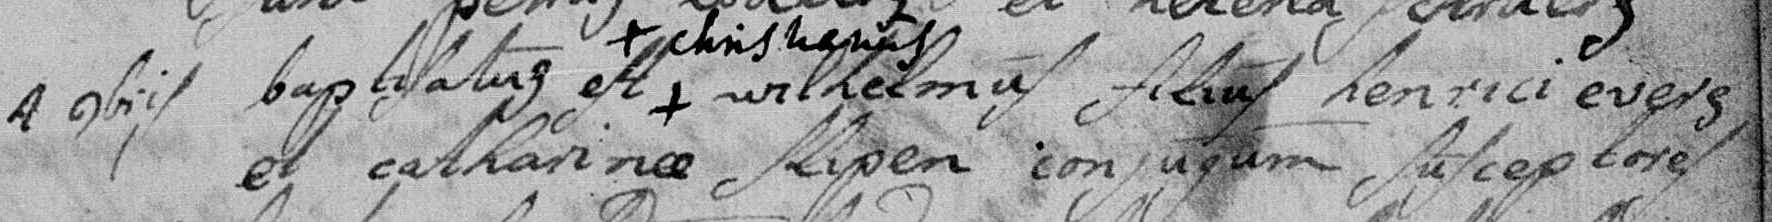 et helena
+ christianus
4 9bris baptisatus est + wilhelmus filius henrici evers
et catharinæ Stipen conjugum susceptores